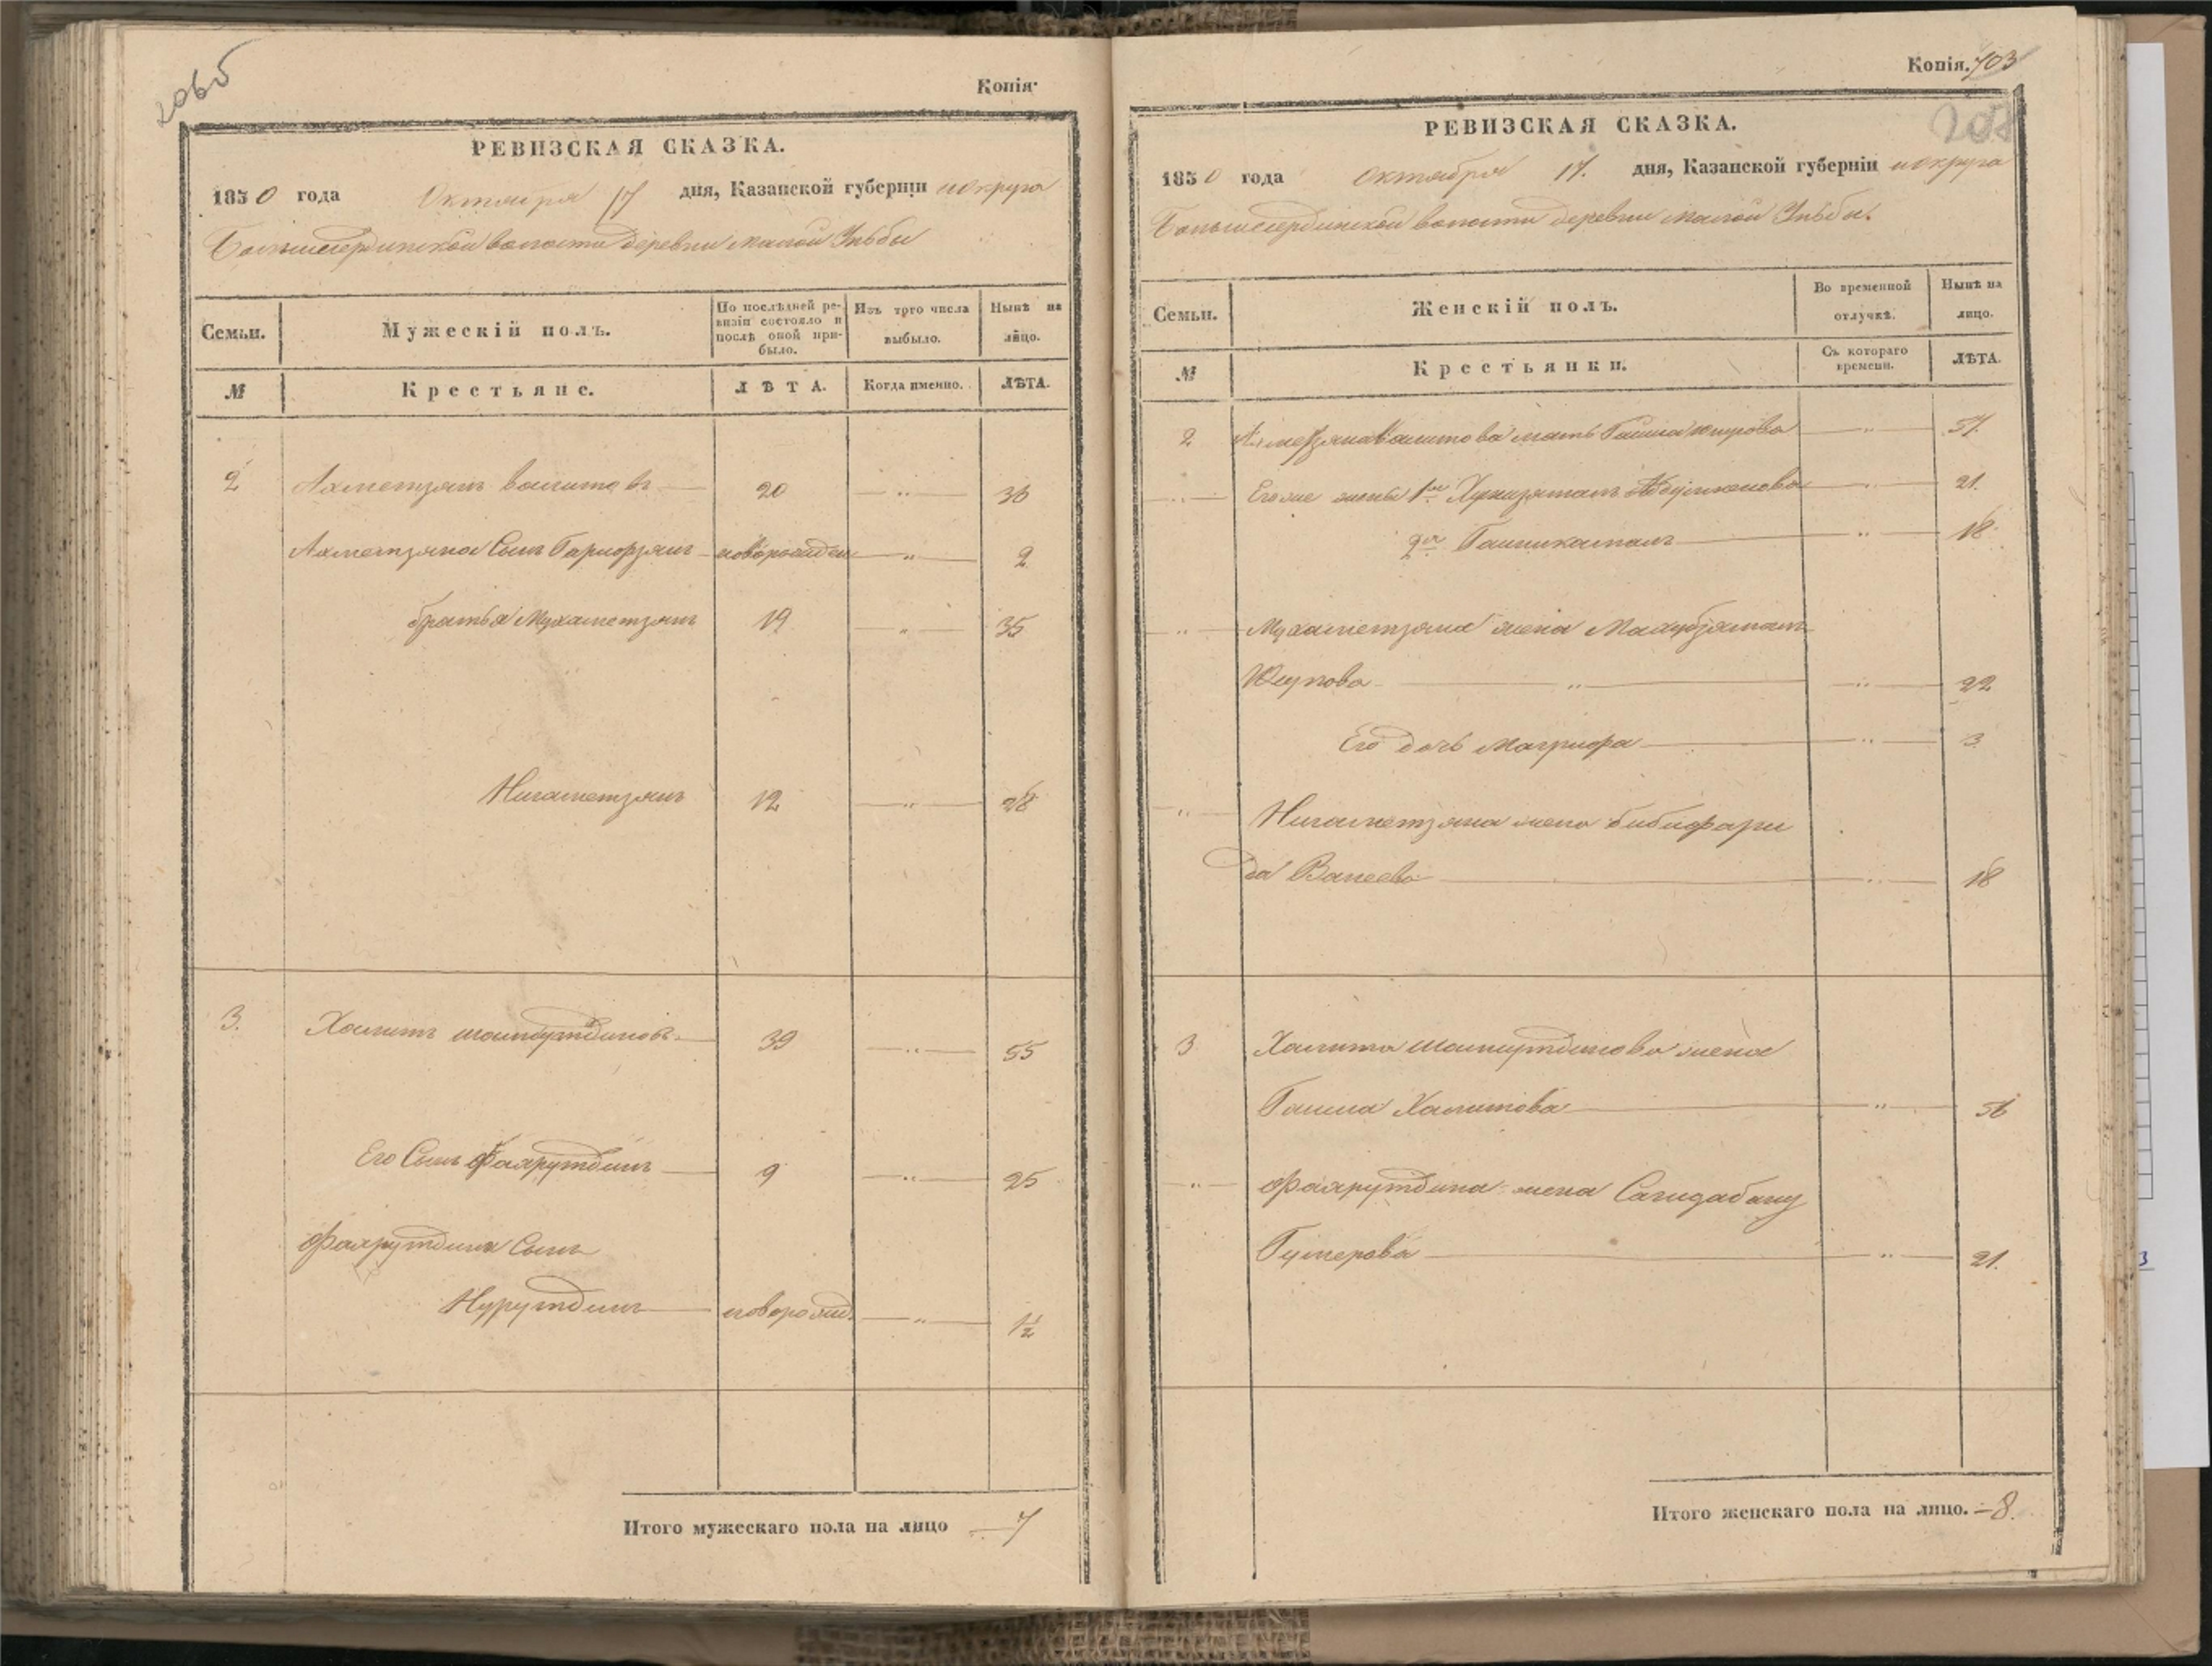 206б
Копія.
РЕВИЗСКАЯ СКАЗКА.
1850 года Октября 17 дня, Казанской губерніи и округа
Большесердинской волости деревни малой Уньбы
Семьи. Мужескій полъ. По послѣдней ревизіи состояло и послѣ оной прибыло. Изъ того числа выбыло. Нынѣ на лицо.
№ Крестьяне. ЛѢТА. Когда именно. ЛѢТА.
2 Ахметзянъ Валитовъ 20 — „ — 36
Ахметзяна Сынъ Гарифзянъ новорожден — „ — 2
братья Мухаметзянъ 19 — „ — 35
Нигаметзянъ 12 — „ — 28
3. Халитъ 39 — „ — 55
Его Сынъ Фахрутдинъ 9 — „ — 25
Фахрутдина Сынъ
Нурутдинъ новорожд. — „ — 1½
Итого мужескаго пола на лицо — 7
Копія. 703
РЕВИЗСКАЯ СКАЗКА.
1850 года Октября 17. дня, Казанской губерніи и округа
Большесердинской волости деревни малой Уньбы.
Семьи. Женскій полъ. Во временной отлучкѣ. Нынѣ на лицо.
№ Крестьянки. Съ котораго времени. ЛѢТА.
2 Ахметзяна Валитова мать Гайша — „ — 57.
— „ — Его же жены 1ая — „ — 21.
2ая — „ — 18
„ Мухаметзяна жена Махубзямалъ
Юсупова — „ — „ — 22
Его дочь Магрифа — „ — 3
„ Нигаметзяна жена Бибифари
да Валеева — „ — 18
3 Халита жена
Гайша Халитова — „ — 56
— „ — Фахрутдина жена Сагидабану
Гумерова — „ — 21.
Итого женскаго пола на лицо. — 8.